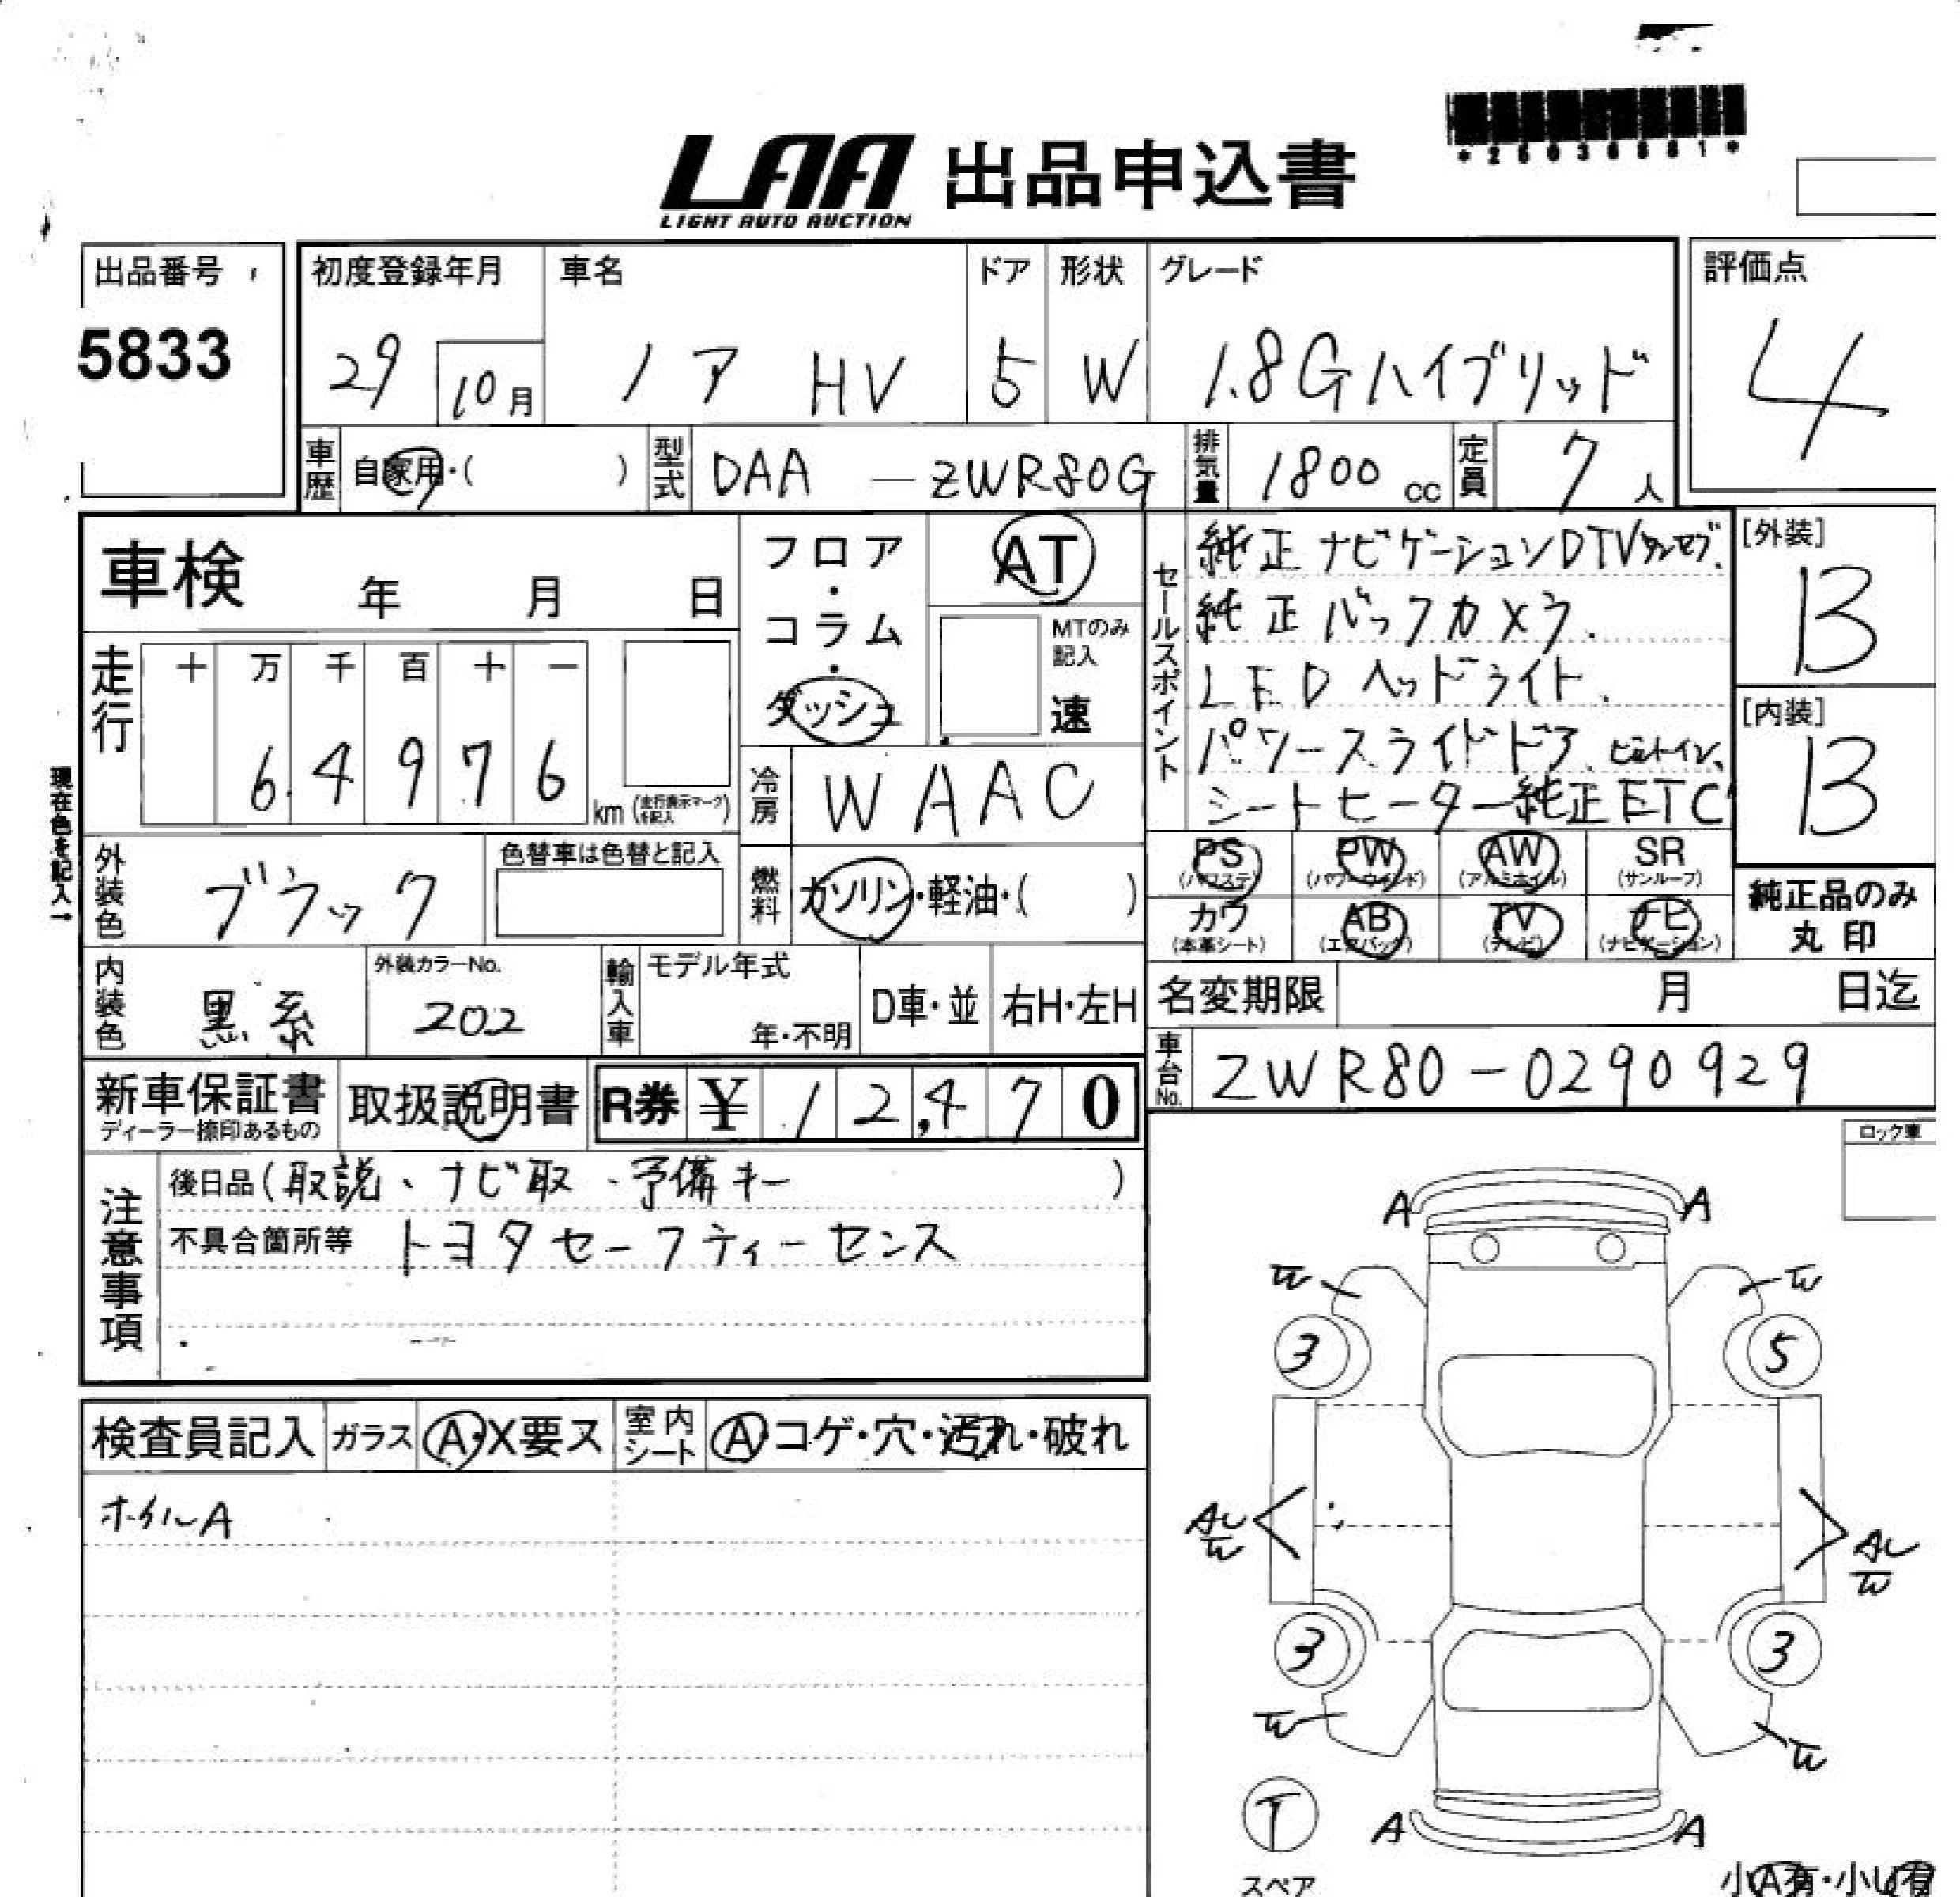 LAA 出品申込書
LIGHT AUTO AUCTION
出品番号
5833
初度登録年月
29 10月
車名
ノア HV
ドア
5
形状
W
グレード
1.8Gハイブリッド
評価点
4
車歴 自家用・( )
型式 DAA-ZWR80G
排気量 1800 cc
定員 7人
車検 年 月 日
フロア・コラム・ダッシュ
AT
MTのみ記入
速
セールスポイント
純正ナビゲーションDTVワンセグ.
純正バックカメラ.
LEDヘッドライト.
パワースライドドア、ビルトイン、
シートヒーター純正ETC
[外装]
B
[内装]
B
走行
十 万 千 百 十 一
6 4 9 7 6 km (走行表示マークを記入)
冷房 WAAC
現在色を記入→
外装色 ブラック
色替車は色替と記入
燃料 ガソリン・軽油・( )
PS (パワステ) PW (パワーウインド) AW (アルミホイル) SR (サンルーフ)
カワ (本革シート) AB (エアバッグ) TV (テレビ) ナビ (ナビゲーション)
純正品のみ
丸印
内装色 黒系
外装カラーNo.
202
輸入車
モデル年式
年・不明
D車・並
右H・左H
名変期限 月 日迄
車台No. ZWR80-0290929
新車保証書
ディーラー捺印あるもの
取扱説明書
R券 ¥ 12,470
注意事項
後日品(取説、ナビ取、予備キー )
不具合箇所等 トヨタセーフティーセンス
ロック車
検査員記入 ガラス A・X要ス 室内シート A・コゲ・穴・汚れ・破れ
ホイルA
A A
W W
3 5
AU
W
AU
W
3 3
W W
T
スペア
A A
小A有・小U有